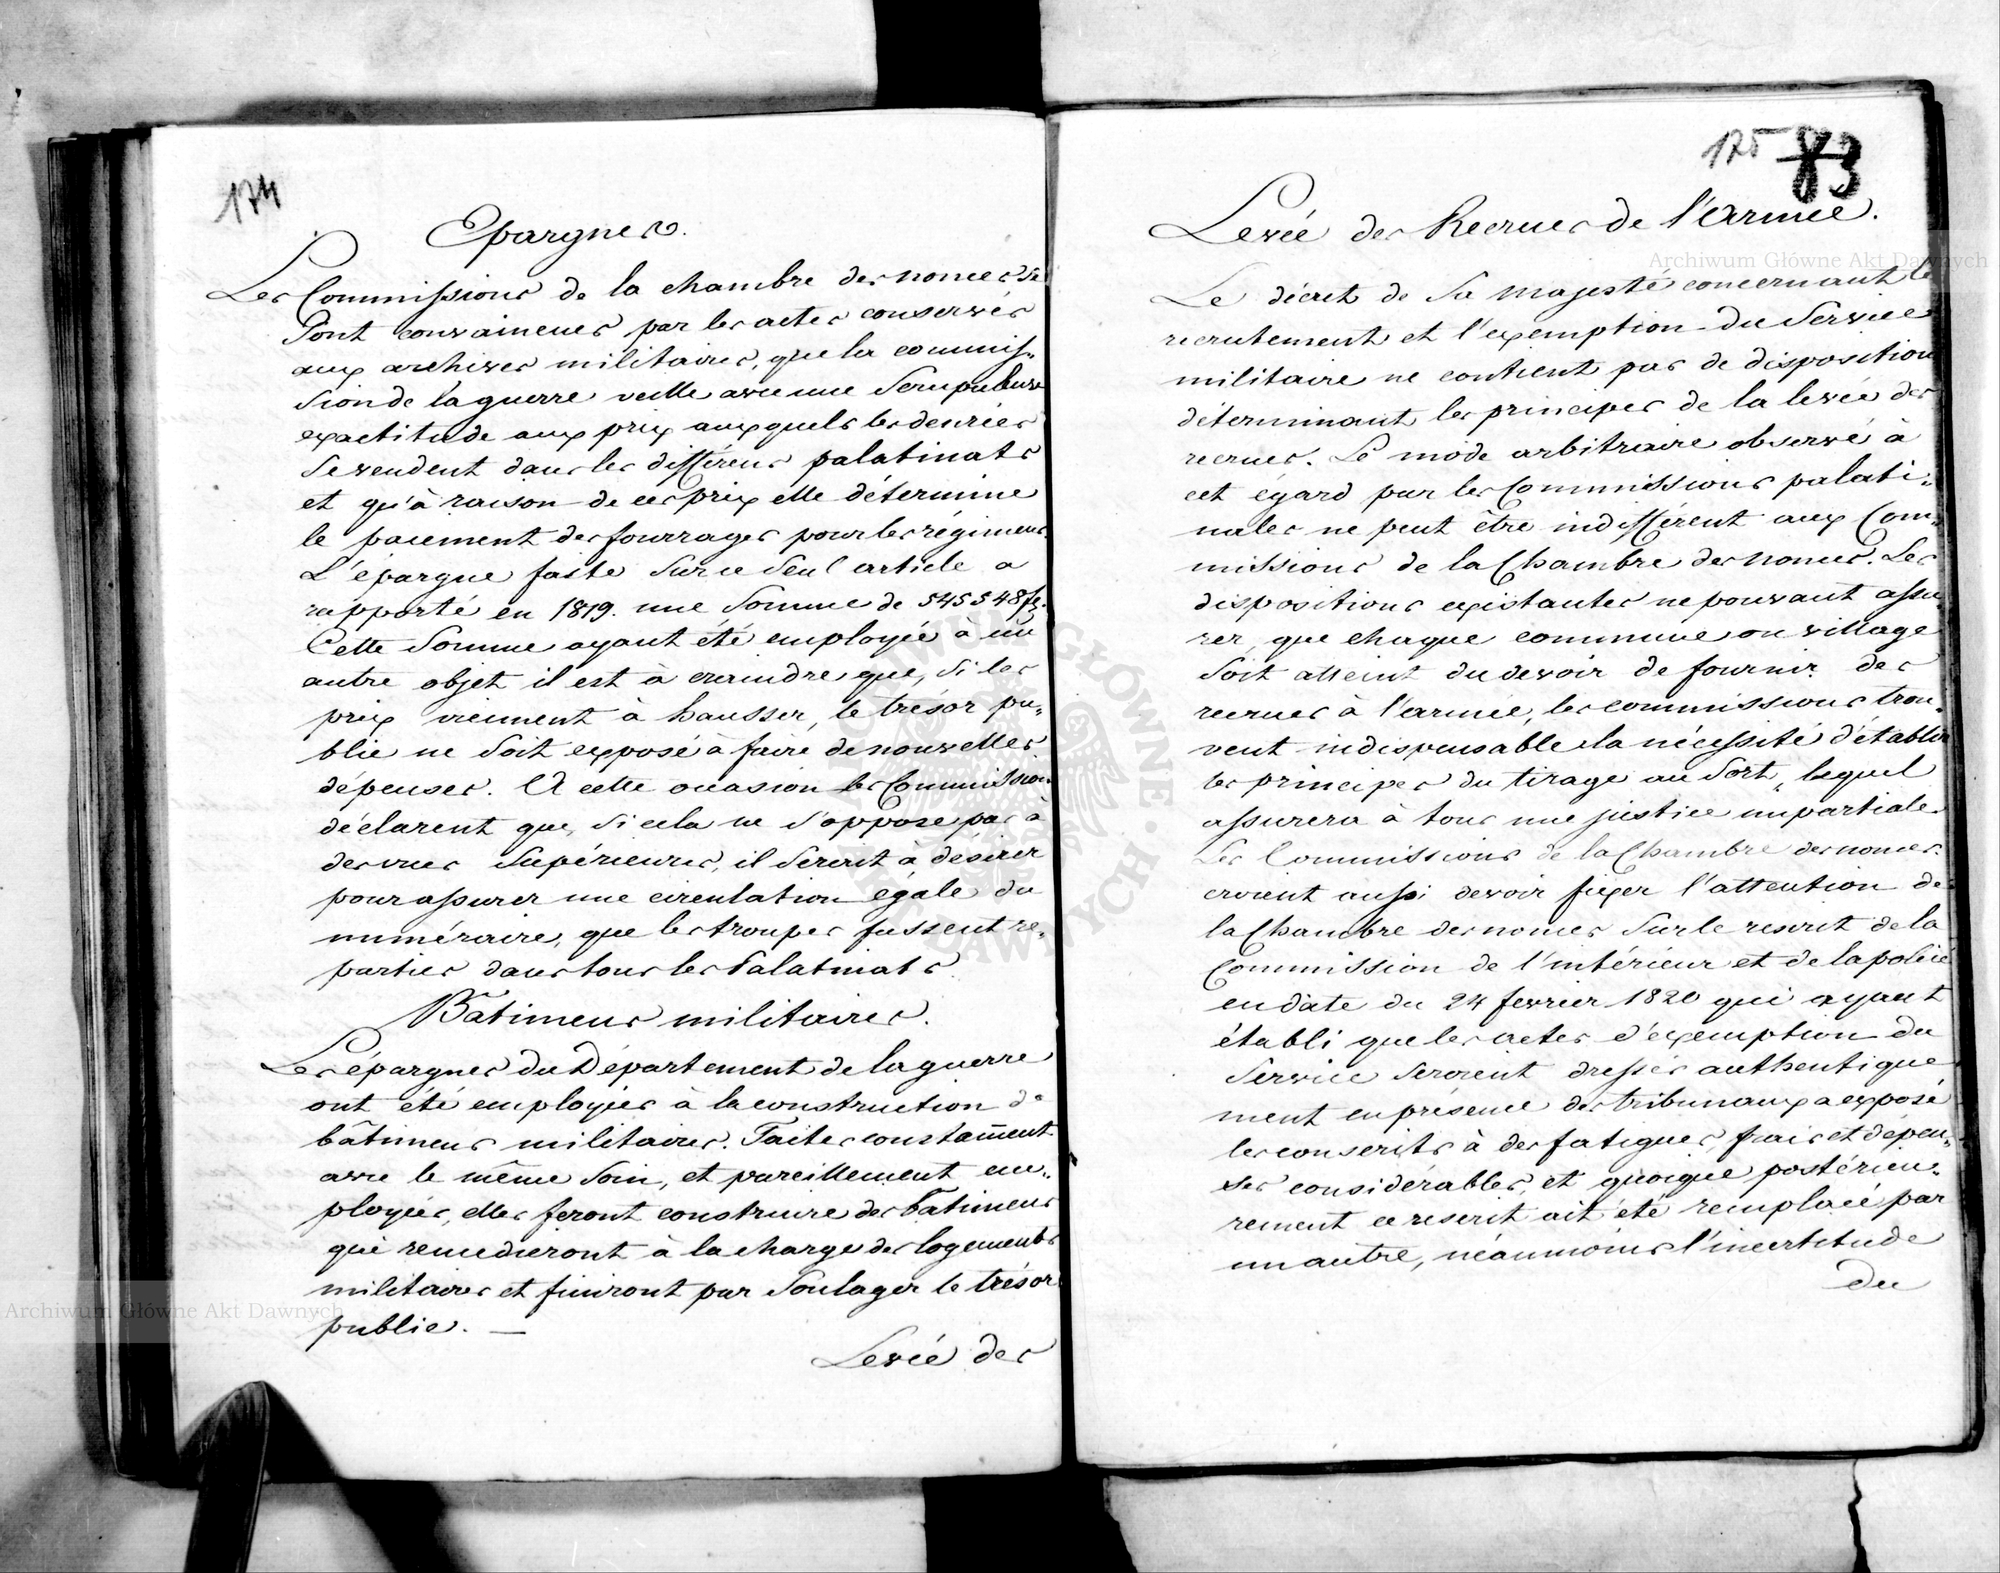 174
Epargnes.
Les Commissions de la chambre des nonces se
sont convaincues par les actes conservés
aux archives militaires, que la commis-
sion de la guerre veille avec une scrupuleuse
exactitude aux prix auxquels les denrées
se vendent dans les différens palatinats
et qu'à raison de ces prix elle détermine
le paiement des fourrages pour les régimens.
L'épargne faite sur ce seul article a
rapporté en 1819. une somme de 545548 fl.
Cette somme ayant été employée à un
autre objet il est à craindre que, si les
prix viennent à hausser, le trésor pu-
blic ne soit exposé à faire de nouvelles
dépenses. A cette occasion les Commissions
déclarent que, si cela ne s'oppose pas à
des vues supérieures, il serait à désirer
pour assurer une circulation égale du
numéraire, que les troupes fussent re-
parties dans tous les Palatinats.
Bâtimens militaires.
Les épargnes du Département de la guerre
ont été employées à la construction de
bâtimens militaires. Faites constam̄ent
avec le même soin, et pareillement em-
ployées, elles feront construire des bâtimens
qui remedieront à la charge des logements
militaires et finiront par soulager le trésor
public. —
Levée des
175 83
Levée des Recrues de l'armée.
Le décret de Sa Majesté concernant le
recrutement et l'exemption du Service
militaire ne contient pas de disposition
déterminant les principes de la levée des
recrues. Le mode arbitraire observé à
cet égard par les Commissions palati-
nales ne peut être indifférent aux Com-
missions de la Chambre des nonces. Les
dispositions existantes ne pouvant assu-
rer, que chaque commune ou village
soit atteint du devoir de fournir des
recrues à l'armée, les commissions trou-
vent indispensable la nécessité d'établir
les principes du tirage au sort, lequel
assurera à tous une justice impartiale.
Les Commissions de la Chambre des nonces
croient aussi devoir fixer l'attention de
la Chambre des nonces sur le rescrit de la
Commission de l'intérieur et de la police
en date du 24 fevrier 1820 qui ayant
établi que les actes d'exemption du
Service seroient dressés authentique
ment en présence des tribunaux a exposé
les conscrits à des fatigues, frais et dépen-
ses considérables, et quoique postérieu-
rement ce rescrit ait été remplacé par
un autre, néanmoins l'incertitude
du
Archiwum Główne Akt Dawnych
Archiwum Główne Akt Dawnych